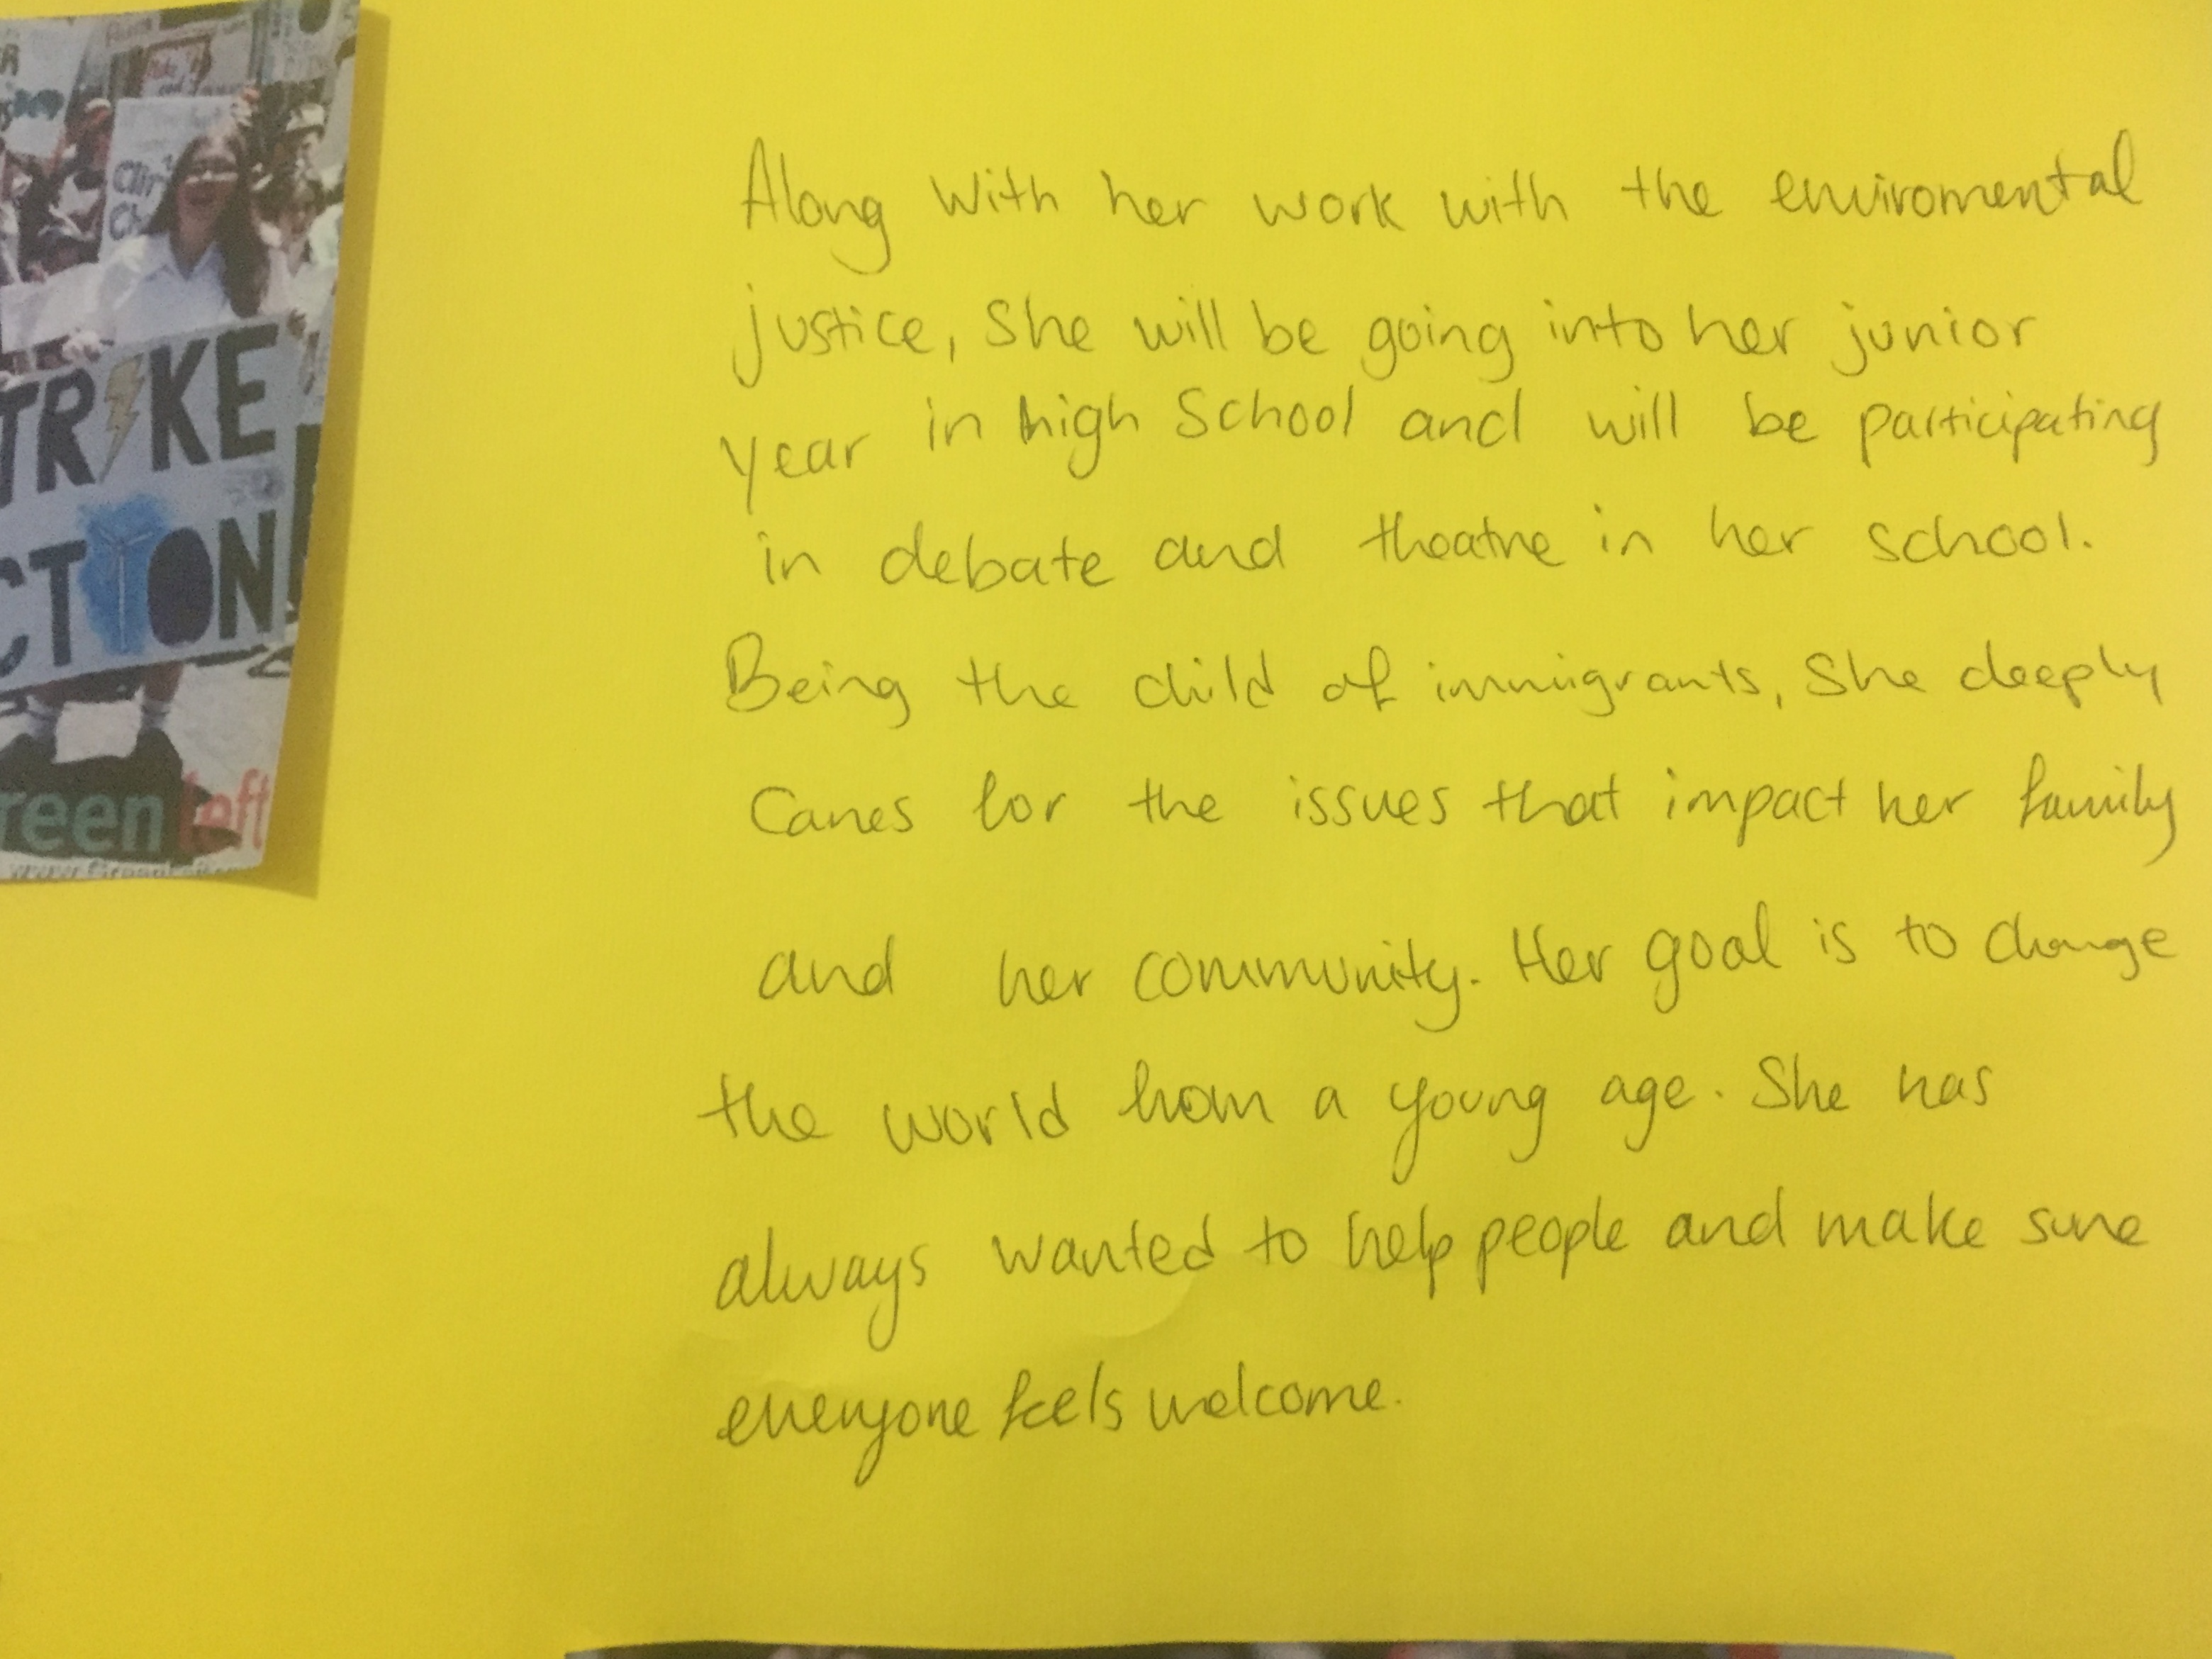 TRIKE
CTION
reen left
Along with her work with the enviromental
justice, She will be going into her junior
year in high School and will be participating
in debate and theatre in her school.
Being the child of immigrants, She deeply
Cares for the issues that impact her family
and her community. Her goal is to change
the world from a young age. She has
always wanted to help people and make sure
everyone feels welcome.